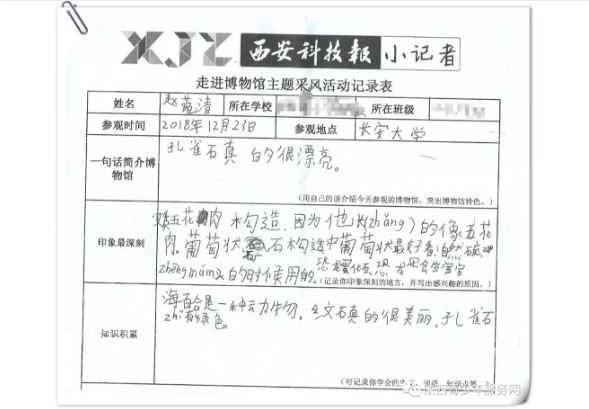 XJZ 西安科技报 小记者
走进博物馆主题采风活动记录表
姓名 赵 清 所在学校 所在班级
参观时间 2018年12月23日 参观地点 长安大学
一句话简介博物馆 孔雀石真的很漂亮。
(用自己的话介绍今天参观的博物馆,突出博物馆特色。)
印象最深刻
五花肉构造,因为他长(zhǎng)的像五花
肉。葡萄状 石构造中葡萄状最好看,自然
的时候用的。
(记录你印象深刻的地方,并写出感兴趣的原因。)
知识积累
海百合是一种动物。文石真的很美丽,孔雀石
zhi有绿色。
(可记录你学会的 词语、知识点等。)
陕西青少年服务网